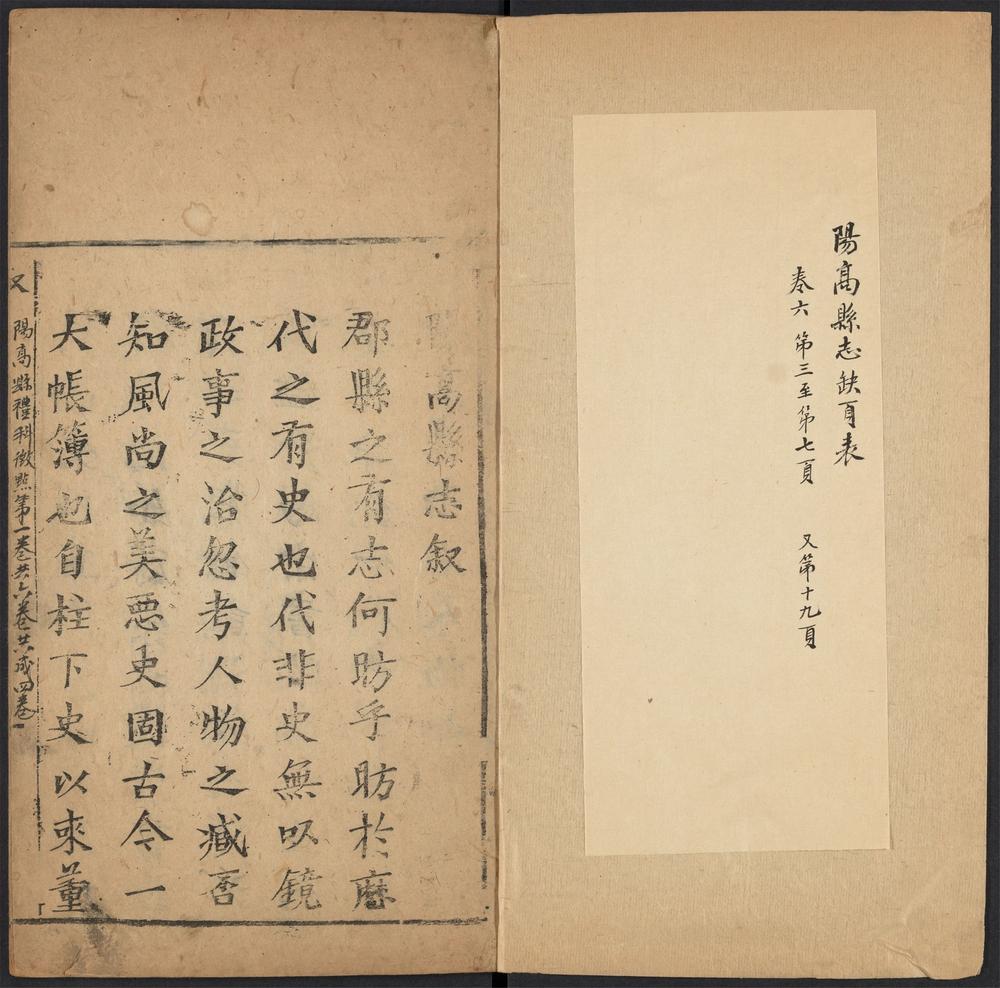 陽髙縣志缺頁表
卷六 第三至第七頁 又第十九頁
陽髙縣志叙
郡縣之有志何昉乎昉扵歴
代之有史也代非史無以鏡
政事之治忽考人物之臧否
知風尚之美惡史固古今一
大帳簿也自柱下史以來董
又 陽高縣禮科 第一卷共六卷共成四卷